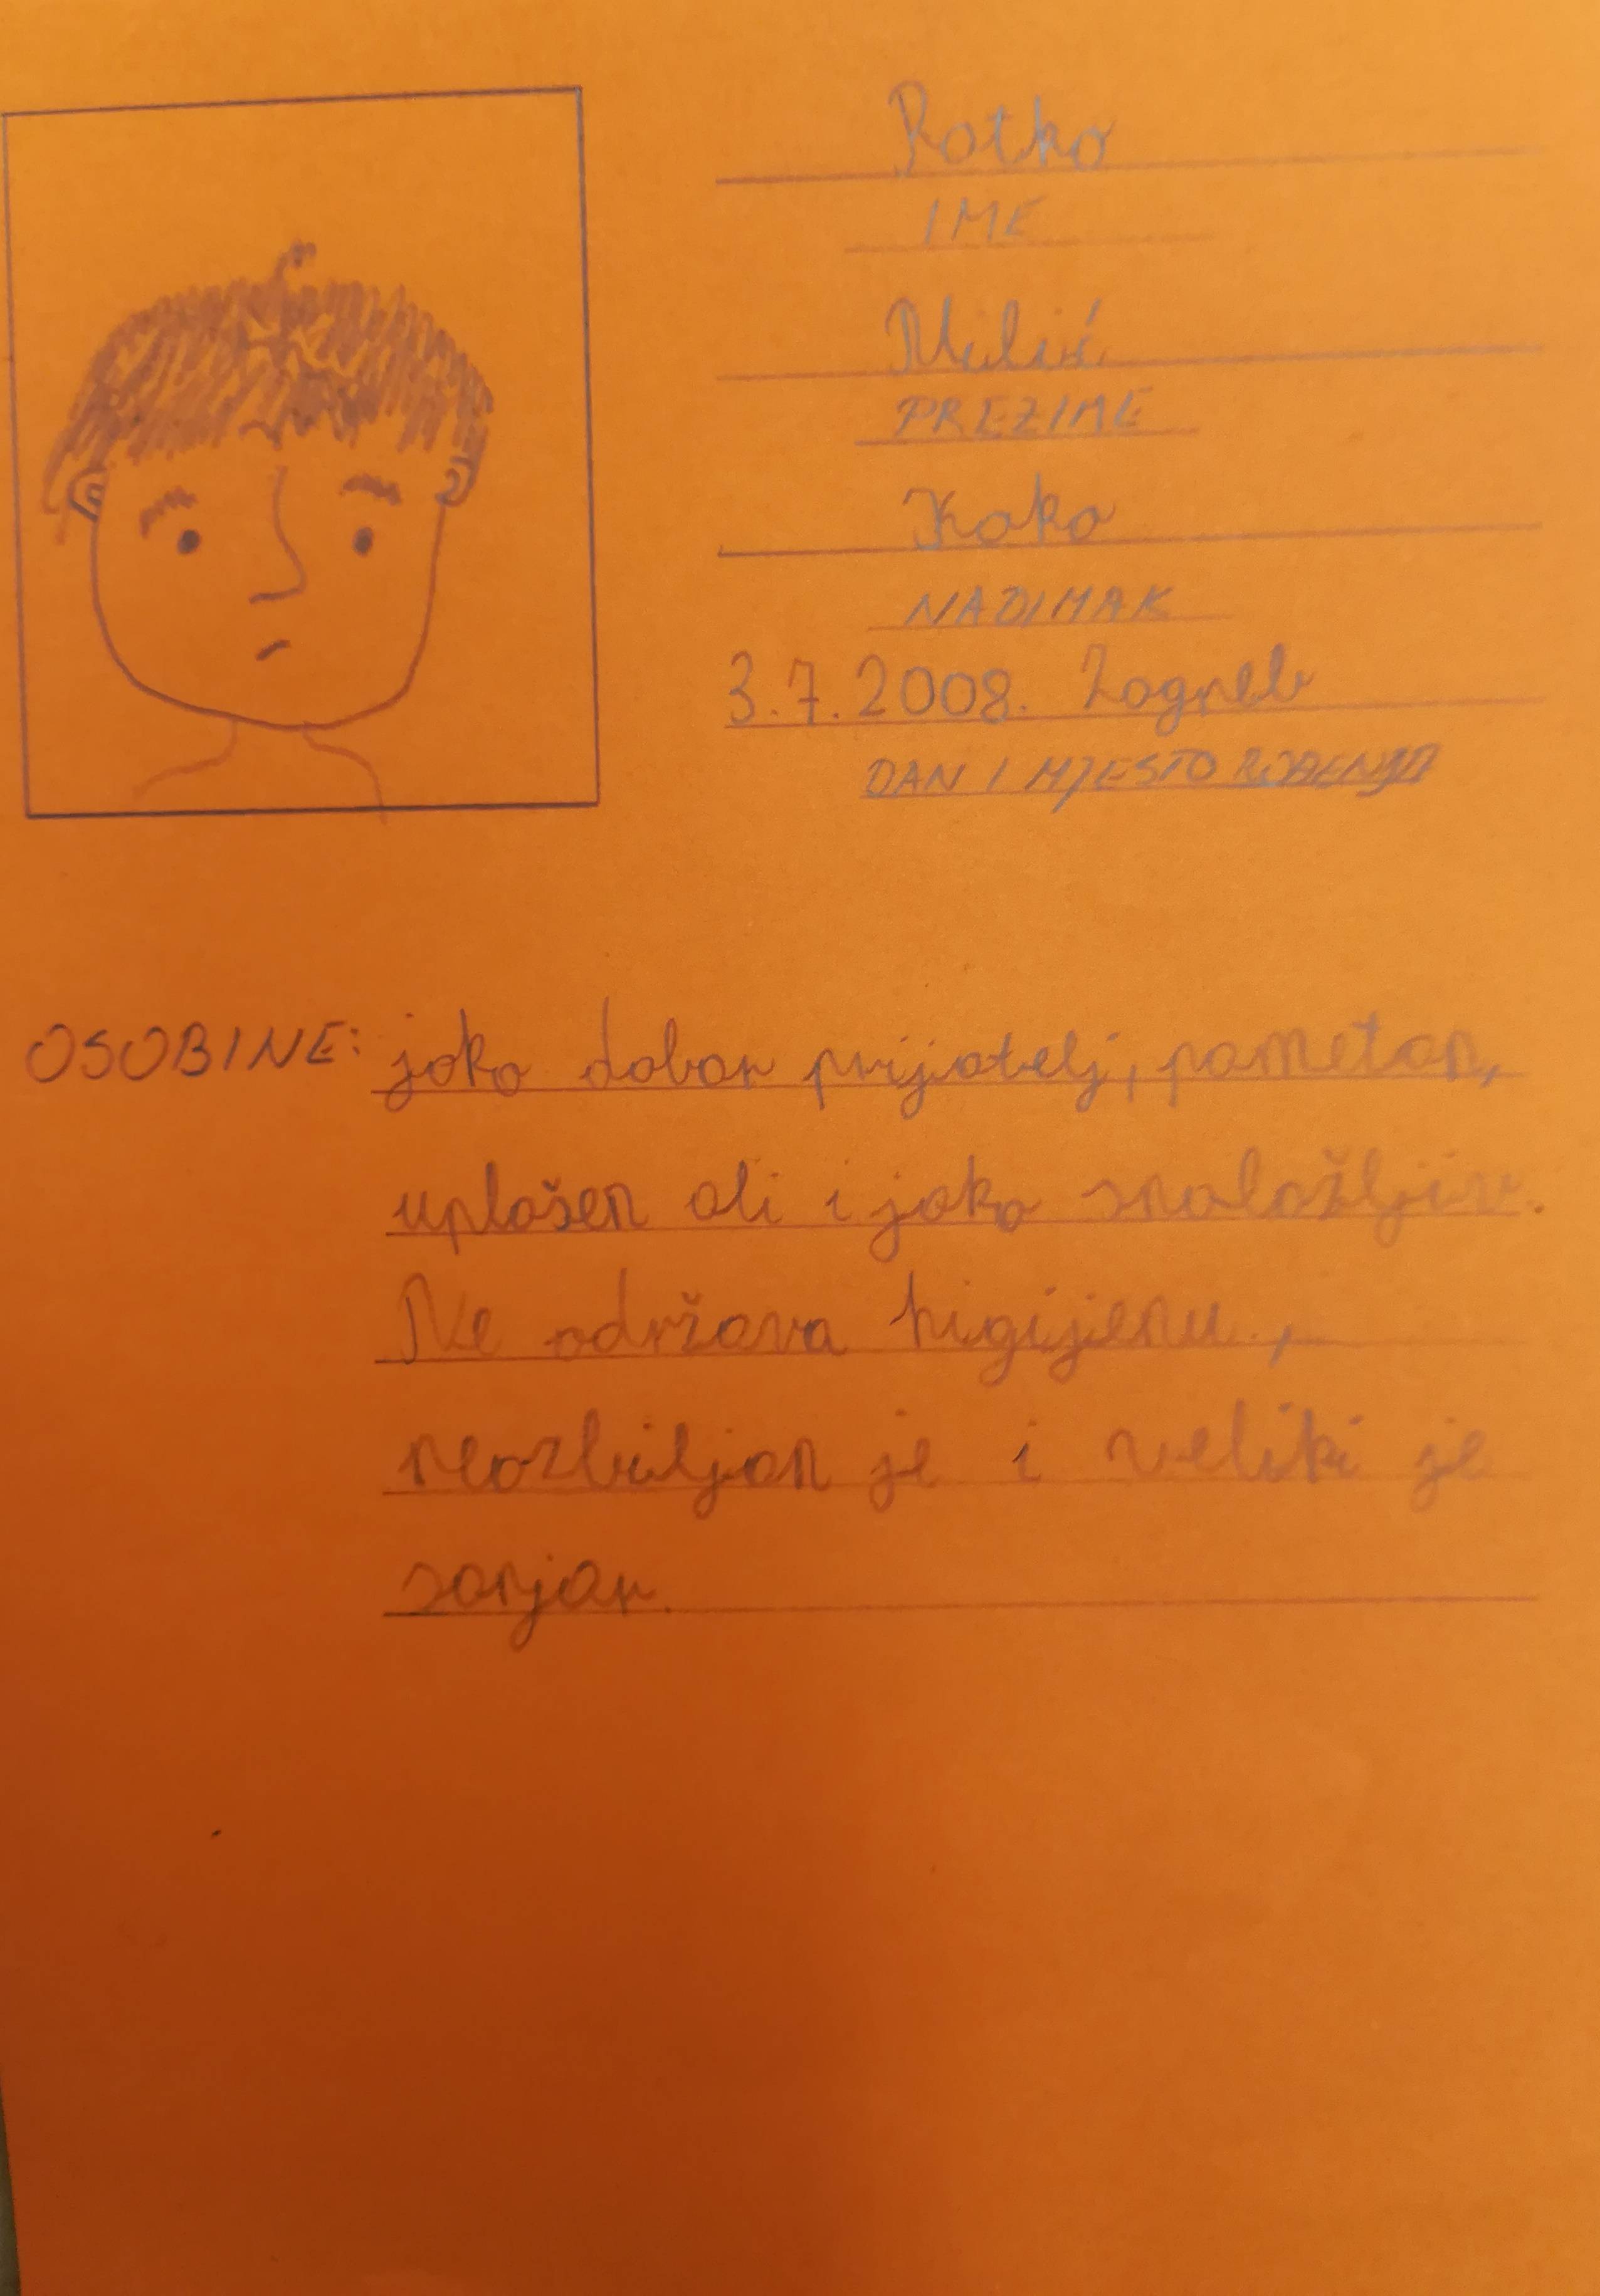 Ratko
IME
Milić
PREZIME
Koko
NADIMAK
3.7.2008. Zagreb
DAN I MJESTO ROĐENJA
OSOBINE: jako dobar prijatelj, pametan,
uplašen ali i jako snalažljiv.
Ne održava higijenu,
neozbiljan je i veliki je
sanjar.